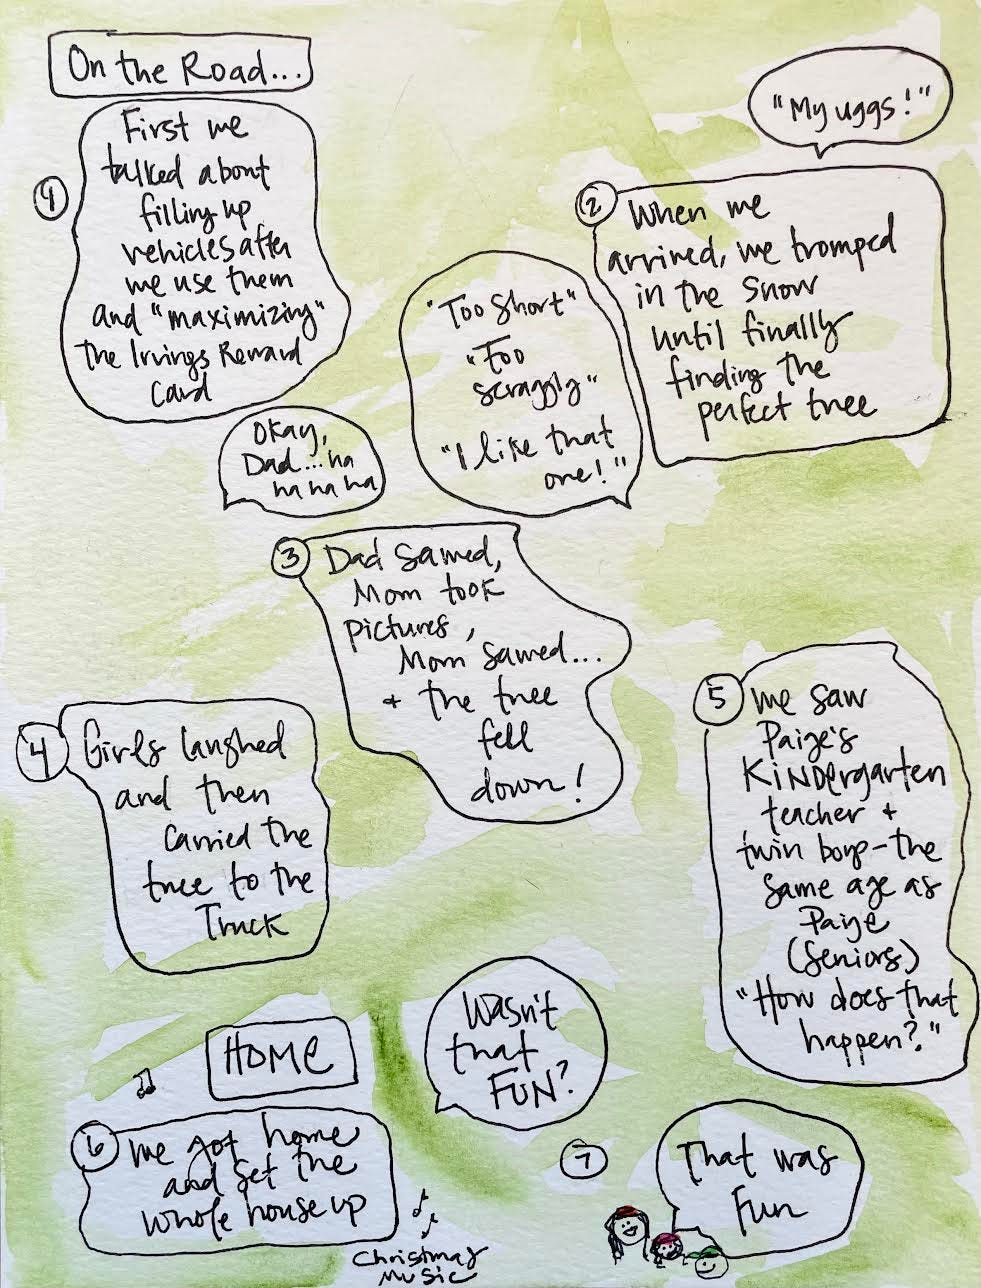 On the Road...
1
First we
talked about
filling up
vehicles after
we use them
and "maximizing"
the Irvings Reward
Card
Okay,
Dad...ha
ha ha ha
"My uggs!"
2
When we
arrived, we tromped
in the snow
until finally
finding the
perfect tree
"Too short"
"Too
scraggly"
"I like that
one!"
3
Dad sawed,
Mom took
pictures,
Mom sawed...
+ the tree
fell
down!
4
Girls laughed
and then
carried the
tree to the
Truck
5
we saw
Paige's
Kindergarten
teacher +
twin boys-the
same age as
Paige
(Seniors)
"How does that
happen?"
Wasn't
that
FUN?
HOME
6
we got home
and set the
whole house up
Christmas
Music
7
That was
Fun